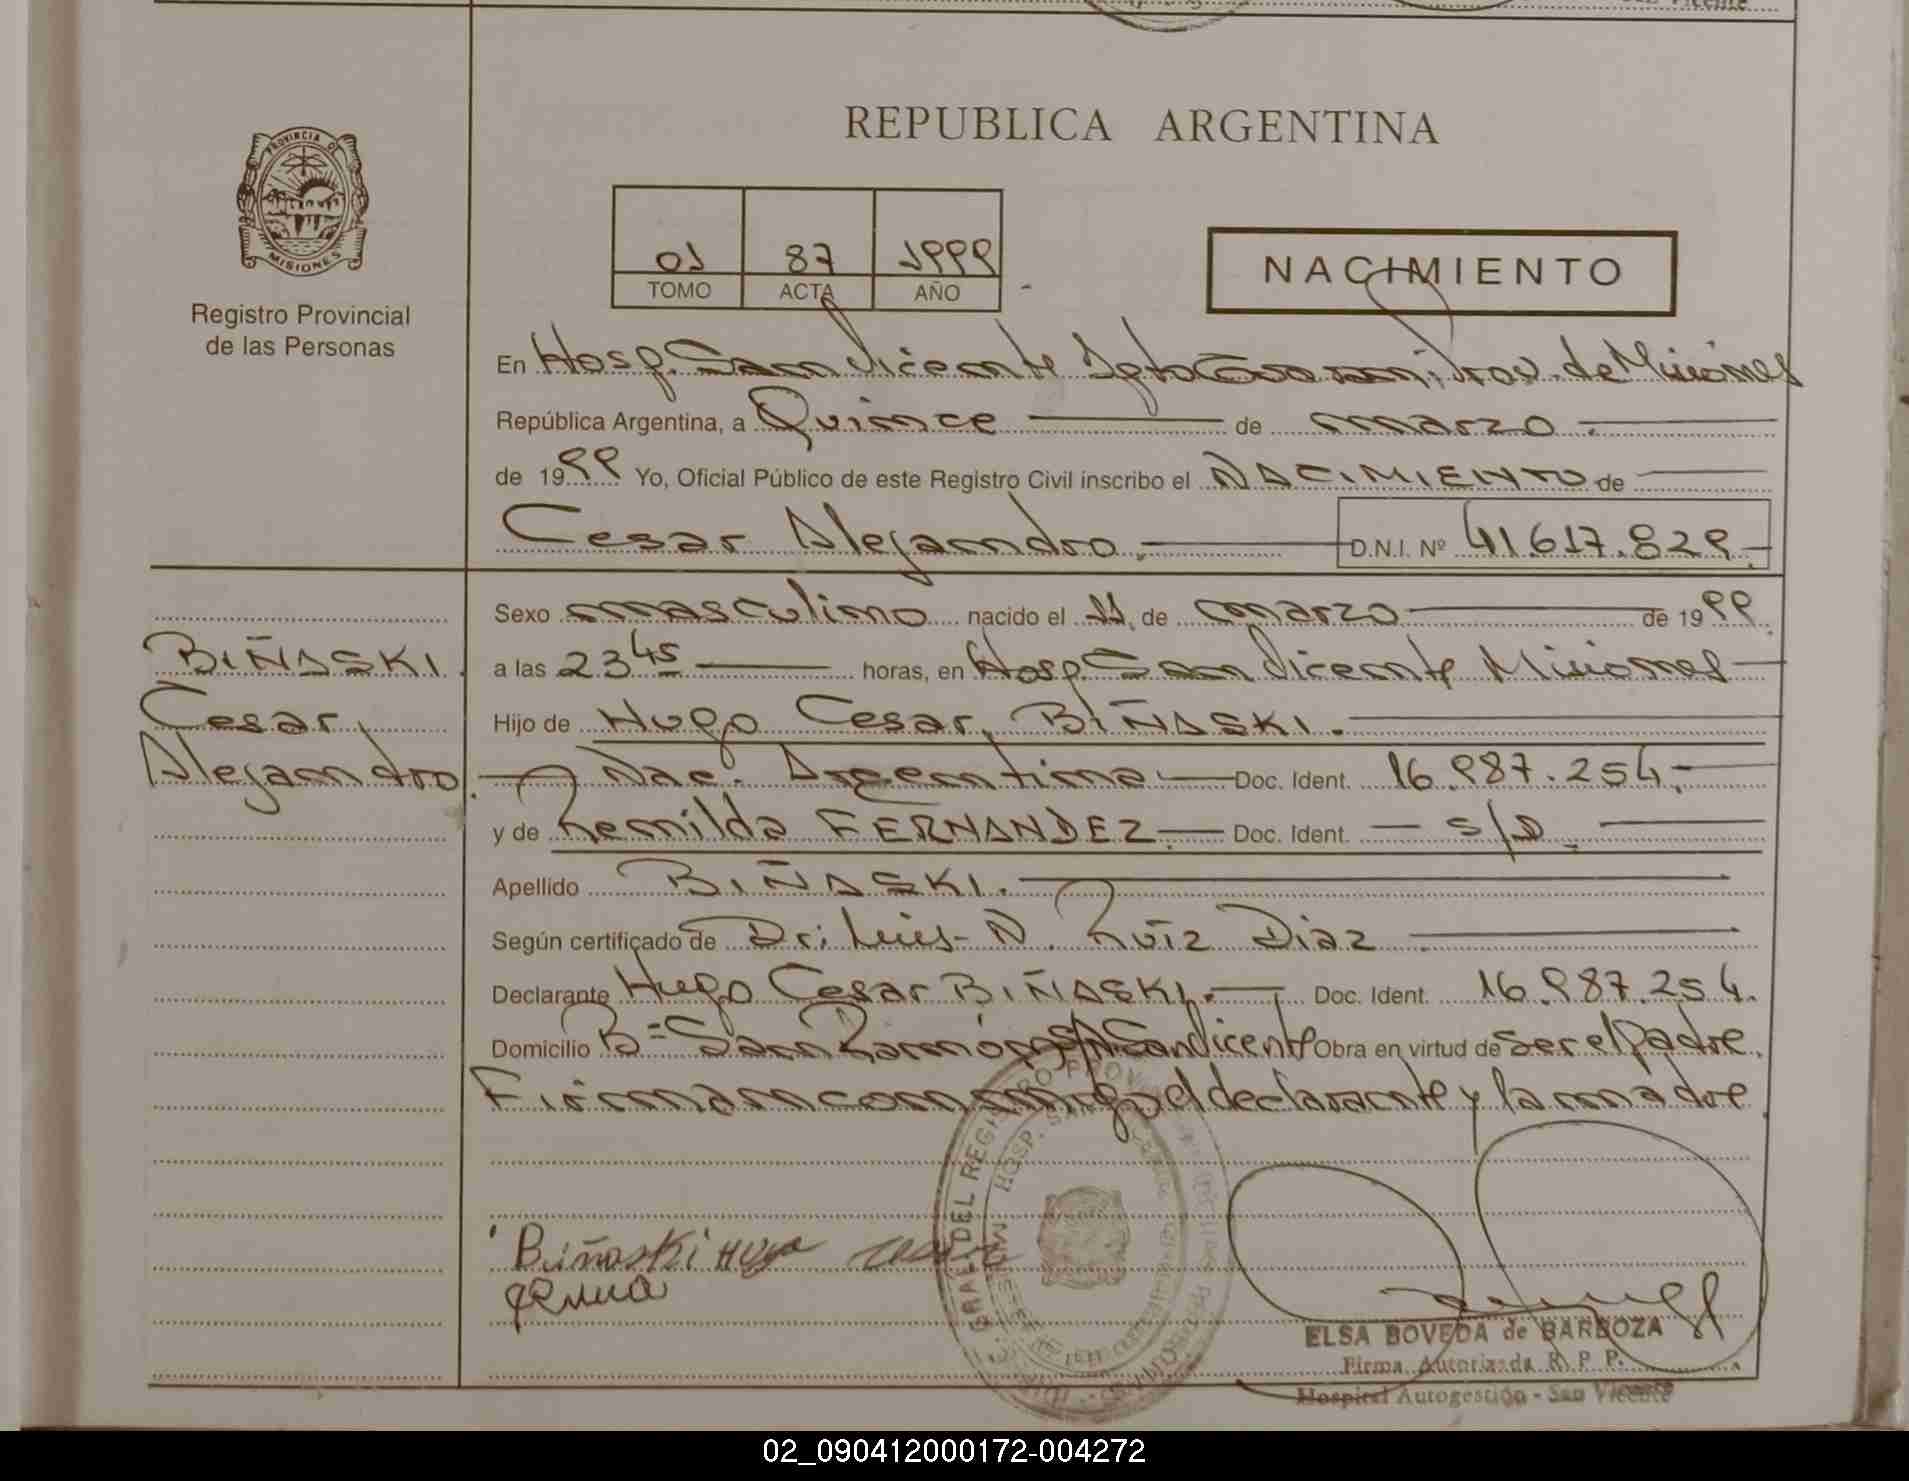 San Vicente
PROVINCIA DE
MISIONES
Registro Provincial
de las Personas
REPUBLICA ARGENTINA
01 87 1999
TOMO ACTA AÑO
NACIMIENTO
En Hosp. San Vicente Dpto Guarani, Prov. de Misiones
República Argentina, a Quince de marzo.
de 1999 Yo, Oficial Público de este Registro Civil inscribo el NACIMIENTO de
Cesar Alejandro. D.N.I. Nº 41.617.829.
BIÑASKI.
Cesar
Alejandro.
Sexo masculino nacido el 11, de marzo de 1999.
a las 23 45 horas, en Hosp. San Vicente Misiones
Hijo de Hugo Cesar, BIÑASKI.
Nac. Argentina Doc. Ident. 16.987.254.
y de Remilda FERNANDEZ Doc. Ident. s/D.
Apellido BIÑASKI.
Según certificado de Dr: Luis N. Ruiz Diaz
Declarante Hugo Cesar BIÑASKI. Doc. Ident. 16.987.254.
Domicilio Bº San Ramón s/n San Vicente Obra en virtud de ser el Padre.
Firman conmigo el declarante y la madre.
Biñaski Hugo
GRAL. DEL REGISTRO
HOSP.
ELSA BOVEDA de BARBOZA
Firma Autorizada R. P. P.
Hospital Autogestión - San Vicente
02_090412000172-004272